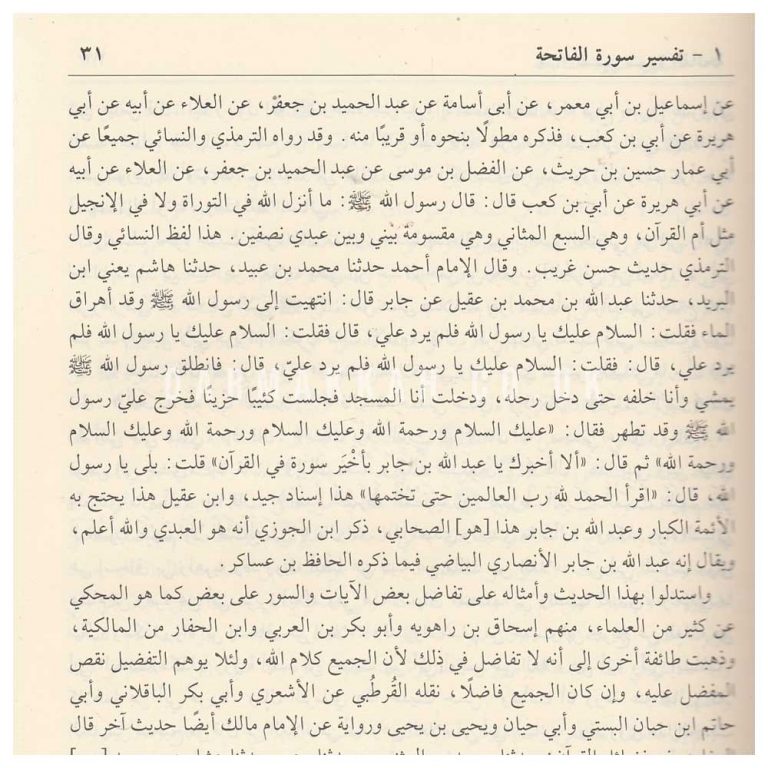 ١ - تفسير سورة الفاتحة ٣١
عن إسماعيل بن أبي معمر، عن أبى أسامة عن عبد الحميد بن جعفرْ، عن العلاء عن أبيه عن أبي
هريرة عن أبي بن كعب، فذكره مطولًا بنحوه أو قريبًا منه. وقد رواه الترمذي والنسائي جميعًا عن
أبي عمار حسين بن حريث، عن الفضل بن موسى عن عبد الحميد بن جعفر، عن العلاء عن أبيه
عن أبي هريرة عن أبي بن كعب قال: قال رسول الله ﷺ: ما أنزل الله في التوراة ولا في الإنجيل
مثل أم القرآن، وهي السبع المثاني وهي مقسومة بيني وبين عبدي نصفين. هذا لفظ النسائي وقال
الترمذي حديث حسن غريب. وقال الإمام أحمد حدثنا محمد بن عبيد، حدثنا هاشم يعني ابن
البريد، حدثنا عبد الله بن محمد بن عقيل عن جابر قال: انتهيت إلى رسول الله ﷺ وقد أهراق
الماء فقلت: السلام عليك يا رسول الله فلم يرد علي، قال فقلت: السلام عليك يا رسول الله فلم
يرد علي، قال: فقلت: السلام عليك يا رسول الله فلم يرد عليّ، قال: فانطلق رسول الله ﷺ
يمشي وأنا خلفه حتى دخل رحله، ودخلت أنا المسجد فجلست كئيبًا حزينًا فخرج عليّ رسول
الله ﷺ وقد تطهر فقال: «عليك السلام ورحمة الله وعليك السلام ورحمة الله وعليك السلام
ورحمة الله» ثم قال: «ألا أخبرك يا عبد الله بن جابر بأخْيَر سورة في القرآن» قلت: بلى يا رسول
الله، قال: «اقرأ الحمد لله رب العالمين حتى تختمها» هذا إسناد جيد، وابن عقيل هذا يحتج به
الأئمة الكبار وعبد الله بن جابر هذا [هو] الصحابي، ذكر ابن الجوزي أنه هو العبدي والله أعلم،
ويقال إنه عبد الله بن جابر الأنصاري البياضي فيما ذكره الحافظ بن عساكر.
واستدلوا بهذا الحديث وأمثاله على تفاضل بعض الآيات والسور على بعض كما هو المحكي
عن كثير من العلماء، منهم إسحاق بن راهويه وأبو بكر بن العربي وابن الحفار من المالكية،
وذهبت طائفة أخرى إلى أنه لا تفاضل في ذلك لأن الجميع كلام الله، ولئلا يوهم التفضيل نقص
المفضل عليه، وإن كان الجميع فاضلًا، نقله القُرطُبي عن الأشعري وأبي بكر الباقلاني وأبي
حاتم ابن حبان البستي وأبي حيان ويحيى بن يحيى ورواية عن الإمام مالك أيضًا حديث آخر قال